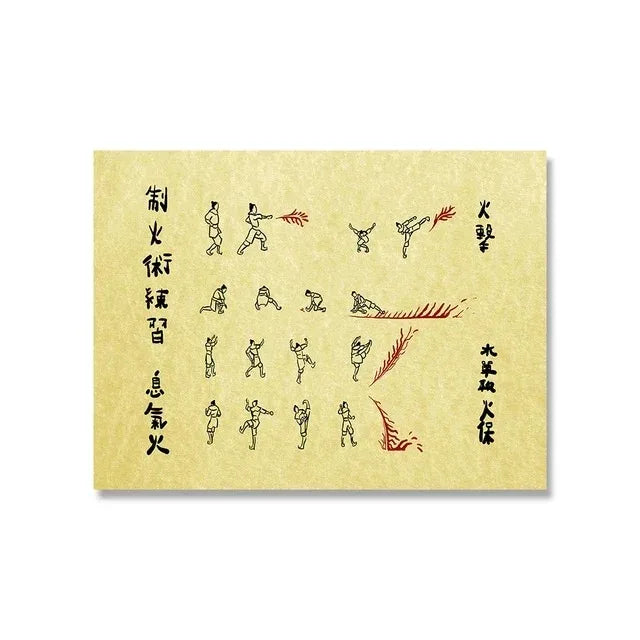 火擊
火保
制火術練習
息氣火